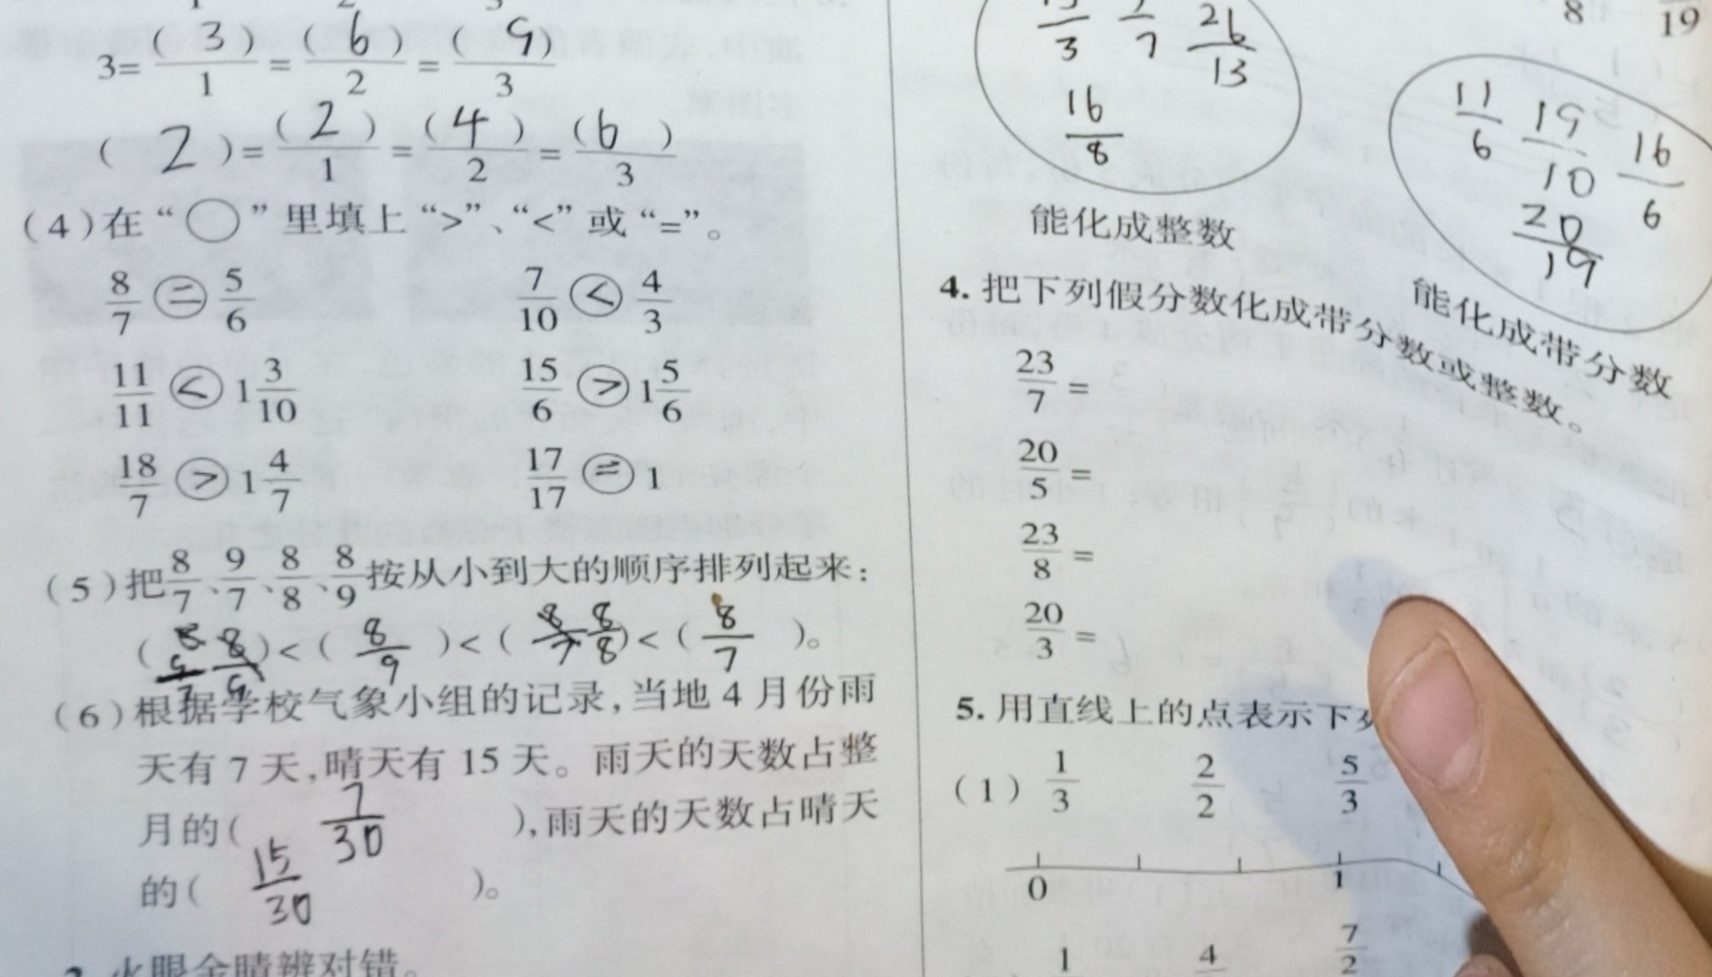 3= (3)/1 = (6)/2 = (9)/3
(2)= (2)/1 = (4)/2 = (6)/3
(4)在“○”里填上“>”、“<”或“=”。
8/7 = 5/6 7/10 < 4/3
11/11 < 1 3/10 15/6 > 1 5/6
18/7 > 1 4/7 17/17 = 1
(5)把 8/7、9/7、8/8、8/9 按从小到大的顺序排列起来:
( 8/9 )<( 8/9 )<( 8/8 )<( 8/7 )。
(6)根据学校气象小组的记录,当地4月份雨
天有7天,晴天有15天。雨天的天数占整
月的( 7/30 ),雨天的天数占晴天
的( 15/30 )。
火眼金睛辨对错。
8 19
3 7 26/13
16/8
能化成整数
11/6 19/10 16/6
20/19
能化成带分数
4. 把下列假分数化成带分数或整数。
23/7 =
20/5 =
23/8 =
20/3 =
5. 用直线上的点表示下
(1) 1/3 2/2 5/3
0 1
1 4 7/2